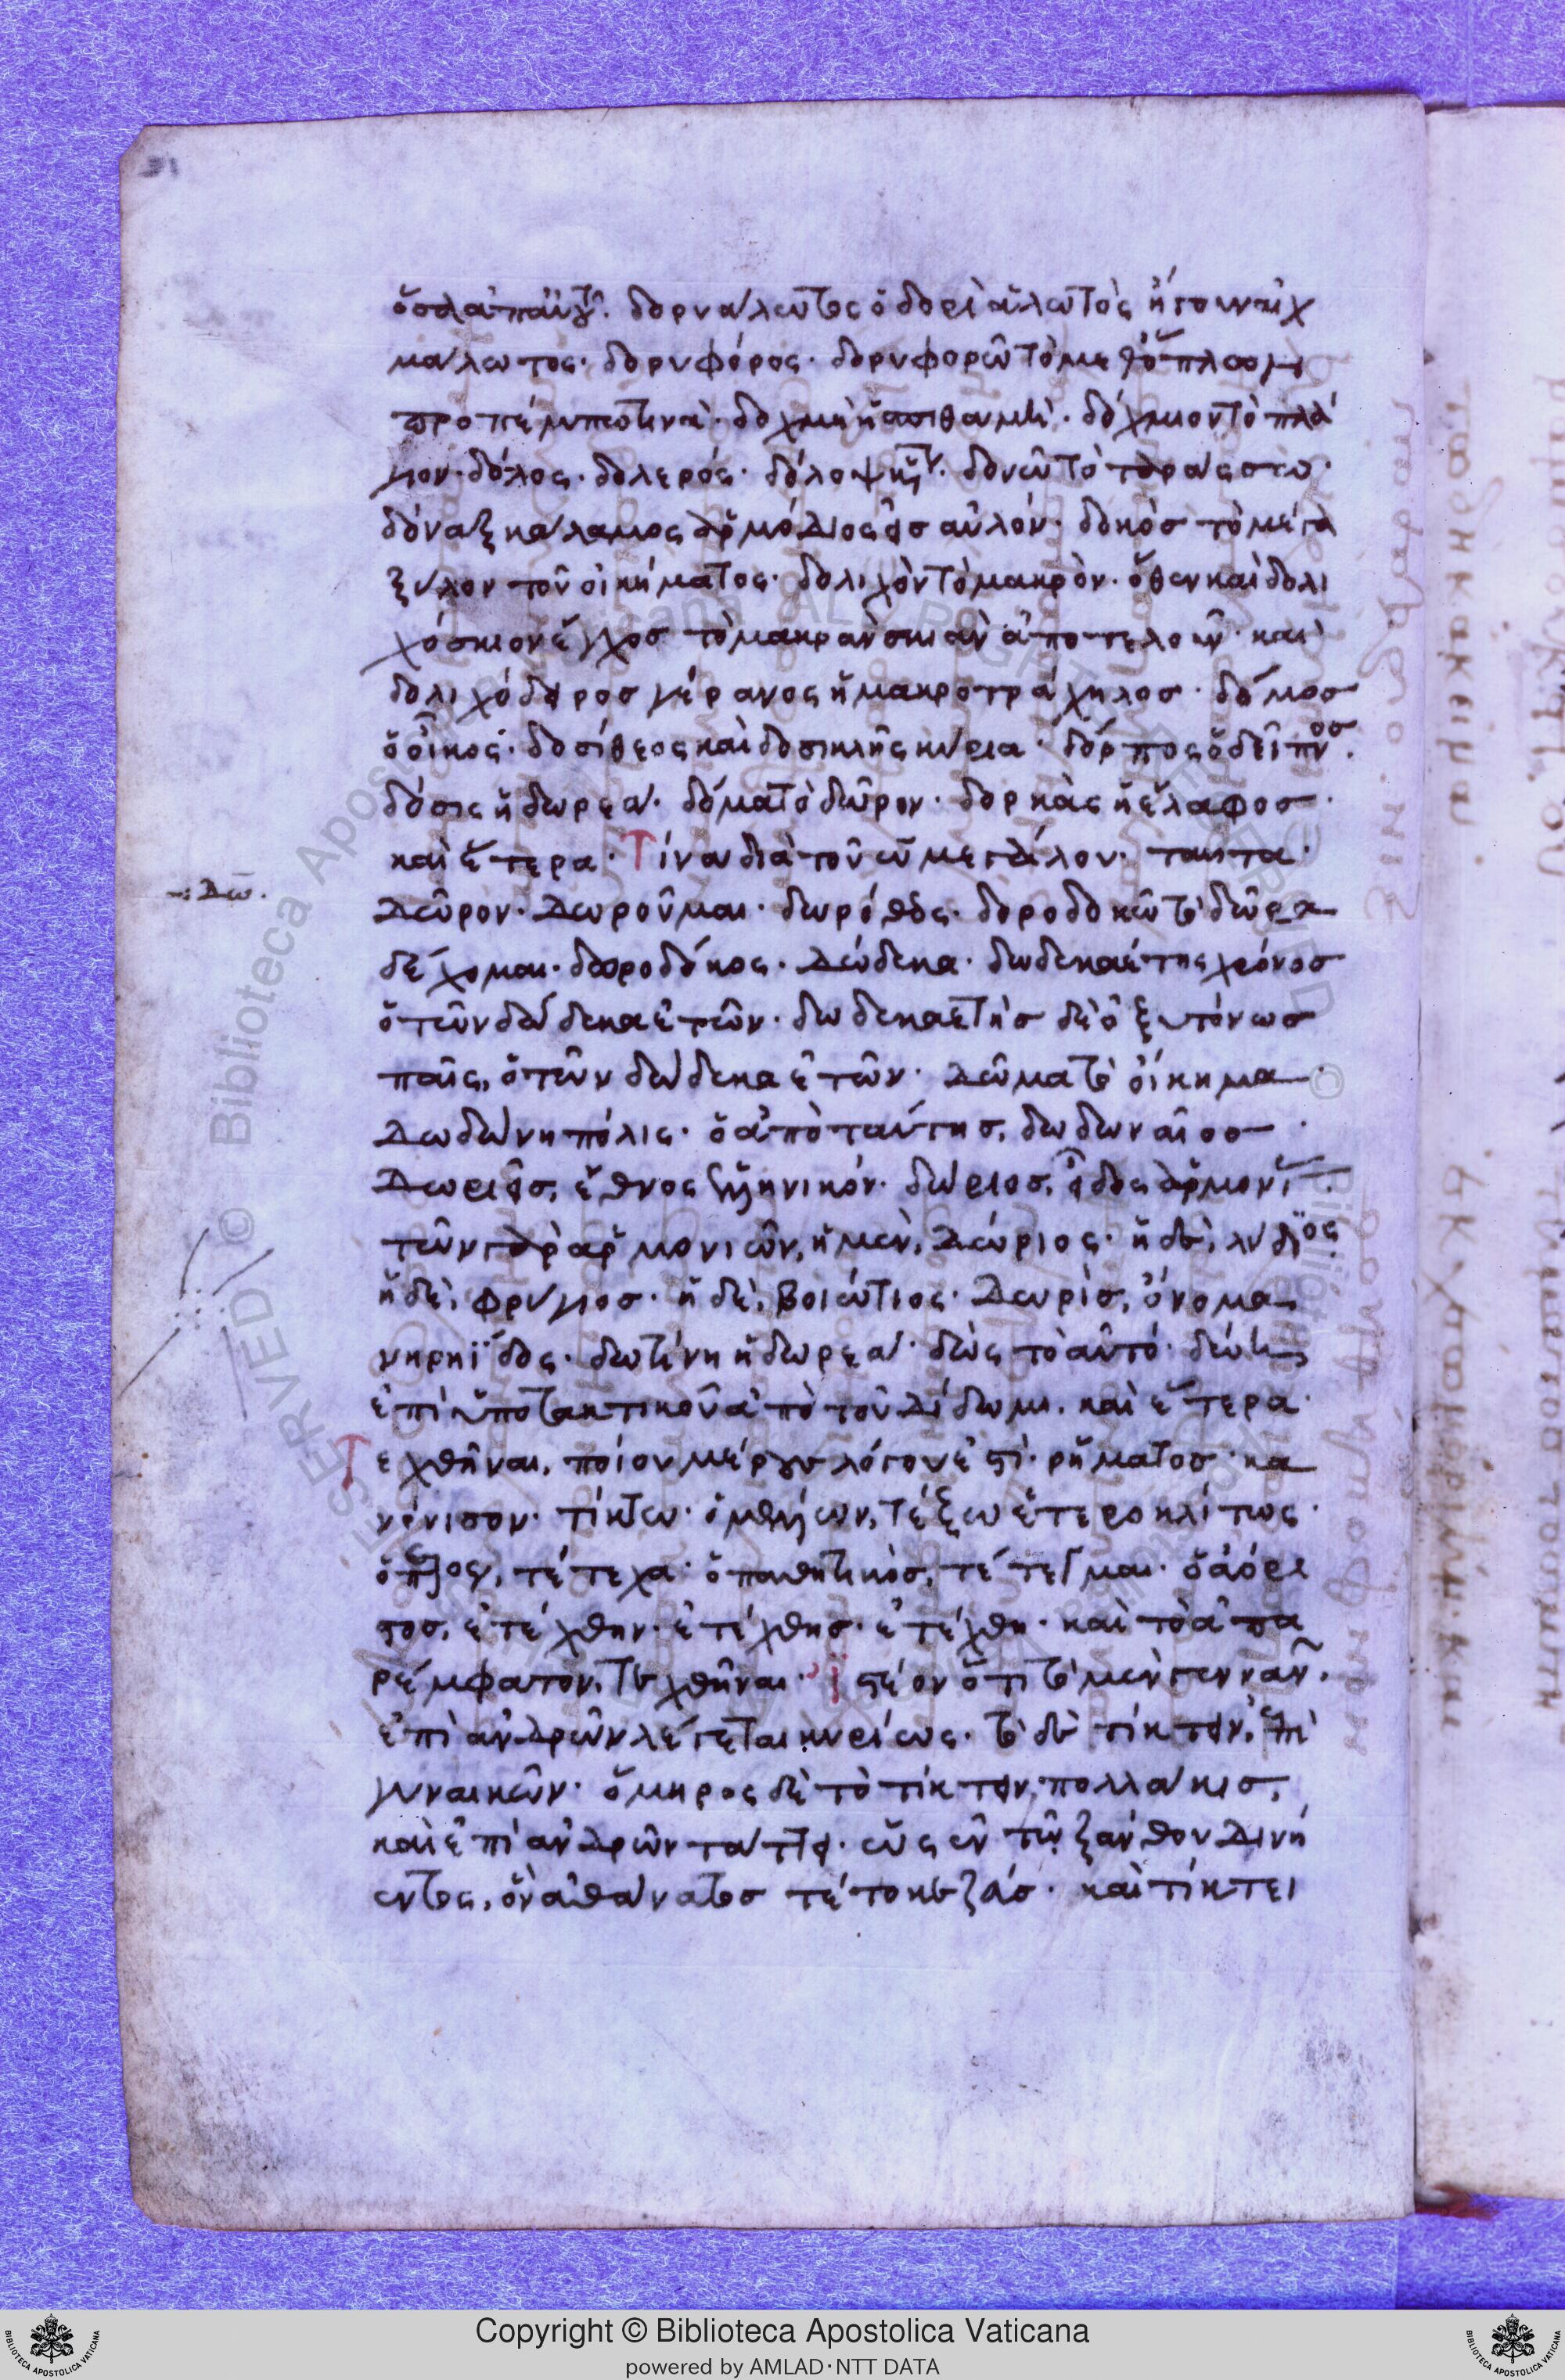 δορυάλωτος ὁ δορὶ ἁλωτὸς ἤγουν αἰχ
μάλωτος· δορυφόρος· δορυφορῶ τὸ μεθ' ὅπλων
προπέμπω τινά· δοχμὴ ἡ σπιθαμή· δόχμιον τὸ πλά
γιον· δόλος· δολερός· δόλοψ δονῶ τὸ ταράσσω·
δόναξ κάλαμος ἁρμόδιος εἰς αὐλόν· δοκὸς τὸ μέγα
ξύλον τοῦ οἰκήματος· δολιχὸν τὸ μακρὸν· ὅθεν καὶ δολι
χόσκιον ἔγχος τὸ μακρὰν σκιὰν ἀποτελοῦν· καὶ
δολιχόδειρος γέρανος ἡ μακροτράχηλος· δόμος
ὁ οἶκος· δοσίθεος καὶ δοσικλῆς κύρια· δόρπος ὁ δεῖπνος·
δόσις ἡ δωρεά· δόμα τὸ δῶρον· δορκὰς ἡ ἔλαφος·
καὶ ἕτερα· Τίνα διὰ τοῦ ω μεγάλου· ταῦτα·
-: Δω.
Δῶρον· Δωροῦμαι· δωρόθεος· δοροδοκῶ τὸ δῶρα
δέχομαι· δωροδόκος· Δώδεκα· δωδεκαέτης χρόνος
ὁ τῶν δώδεκα ἐτῶν· δωδεκαετὴς δὲ ὀξυτόνως
παῖς, ὁ τῶν δώδεκα ἐτῶν· Δῶμα τὸ οἴκημα·
Δωδώνη πόλις· ὁ ἀπὸ ταύτης, δωδωναῖος·
Δωριεῖς, ἔθνος ἑλληνικόν· δώριος, εἶδος ἁρμονίας·
τῶν γὰρ ἁρμονιῶν, ἡ μὲν, Δώριος· ἡ δὲ, λύδιος·
ἡ δὲ, φρύγιος· ἡ δὲ, βοιώτιος· Δωρὶς, ὄνομα
νηρηΐδος· δωτίνη ἡ δωρεά· δὼς τὸ αὐτό· δώῃ
ἐπὶ ὑποτακτικοῦ ἀπὸ τοῦ Δίδωμι. καὶ ἕτερα·
Τεχθῆναι, ποίου μέρους λόγου ἐστί· ῥήματος· κα
νόνισον· τίκτω· ὁ μέλλων, τέξω ἑτεροκλίτως·
ὁ παρακείμενος, τέτεχα· ὁ παθητικὸς, τέτεγμαι· ὁ ἀόρι
στος, ἐτέχθην· ἐτέχθης· ἐτέχθη· καὶ τὸ ἀπα
ρέμφατον, τεχθῆναι· ἰστέον ὅτι τὸ μὲν γεννᾶν,
ἐπὶ ἀνδρῶν λέγεται κυρίως· τὸ δὲ τίκτειν, ἐπὶ
γυναικῶν· ὅμηρος δὲ τὸ τίκτειν, πολλάκις,
καὶ ἐπὶ ἀνδρῶν τάττει· ὡς ἐν τῷ ξάνθου Δινή
εντος, ὃν ἀθάνατος τέτοκε ζεύς· καὶ τίκτει
Copyright © Biblioteca Apostolica Vaticana
powered by AMLAD·NTT DATA